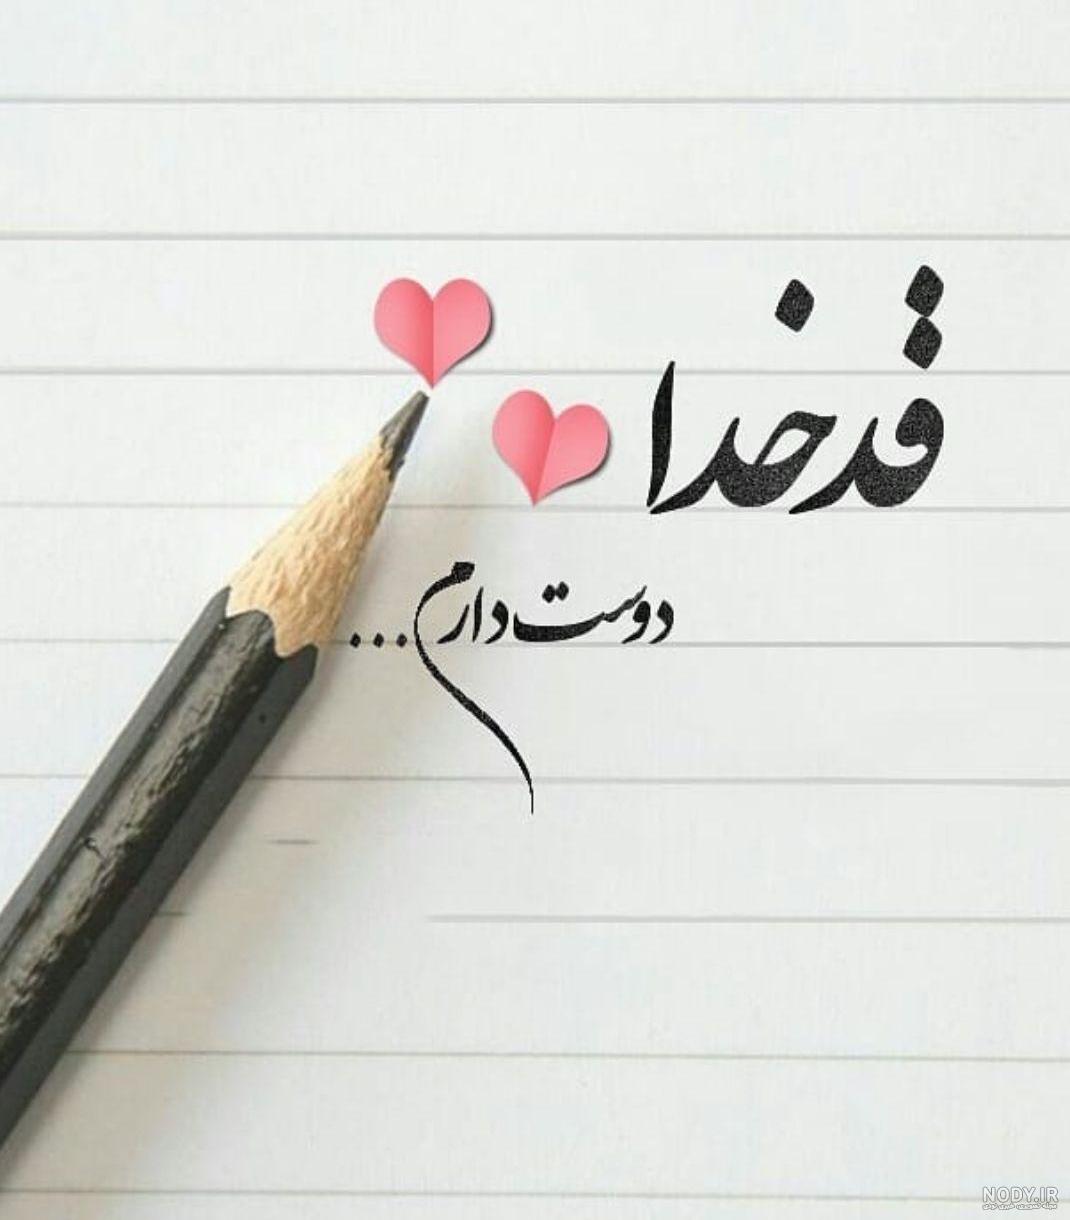 قد خدا
دوست دارم...
NODY.IR